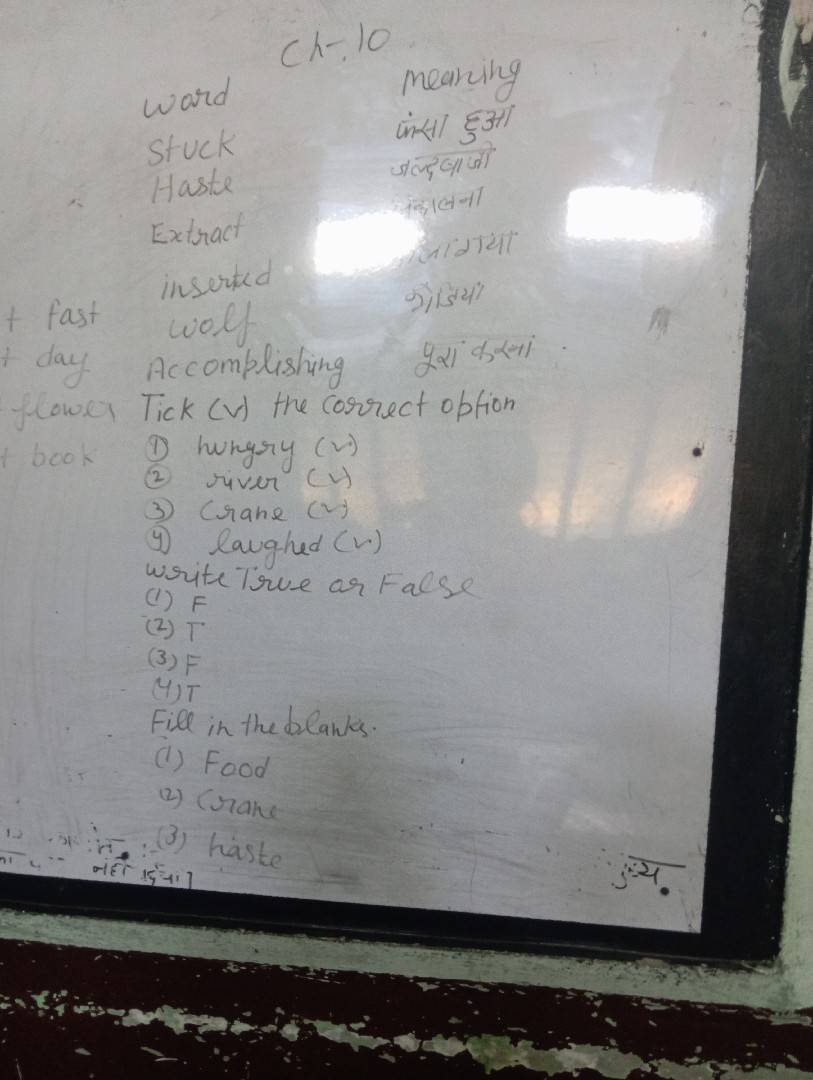 Ch-10
word meaning
Stuck फंसा हुआ
Haste जल्दबाजी
Extract
inserted
wolf
Accomplishing पूरा करना
+ fast
+ day
flower
+ book
Tick (v) the correct option
① hungry (v)
② river (v)
③ Crane (v)
④ laughed (v)
write True or False
(1) F
(2) T
(3) F
(4) T
Fill in the blanks.
(1) Food
(2) Crane
(3) haste